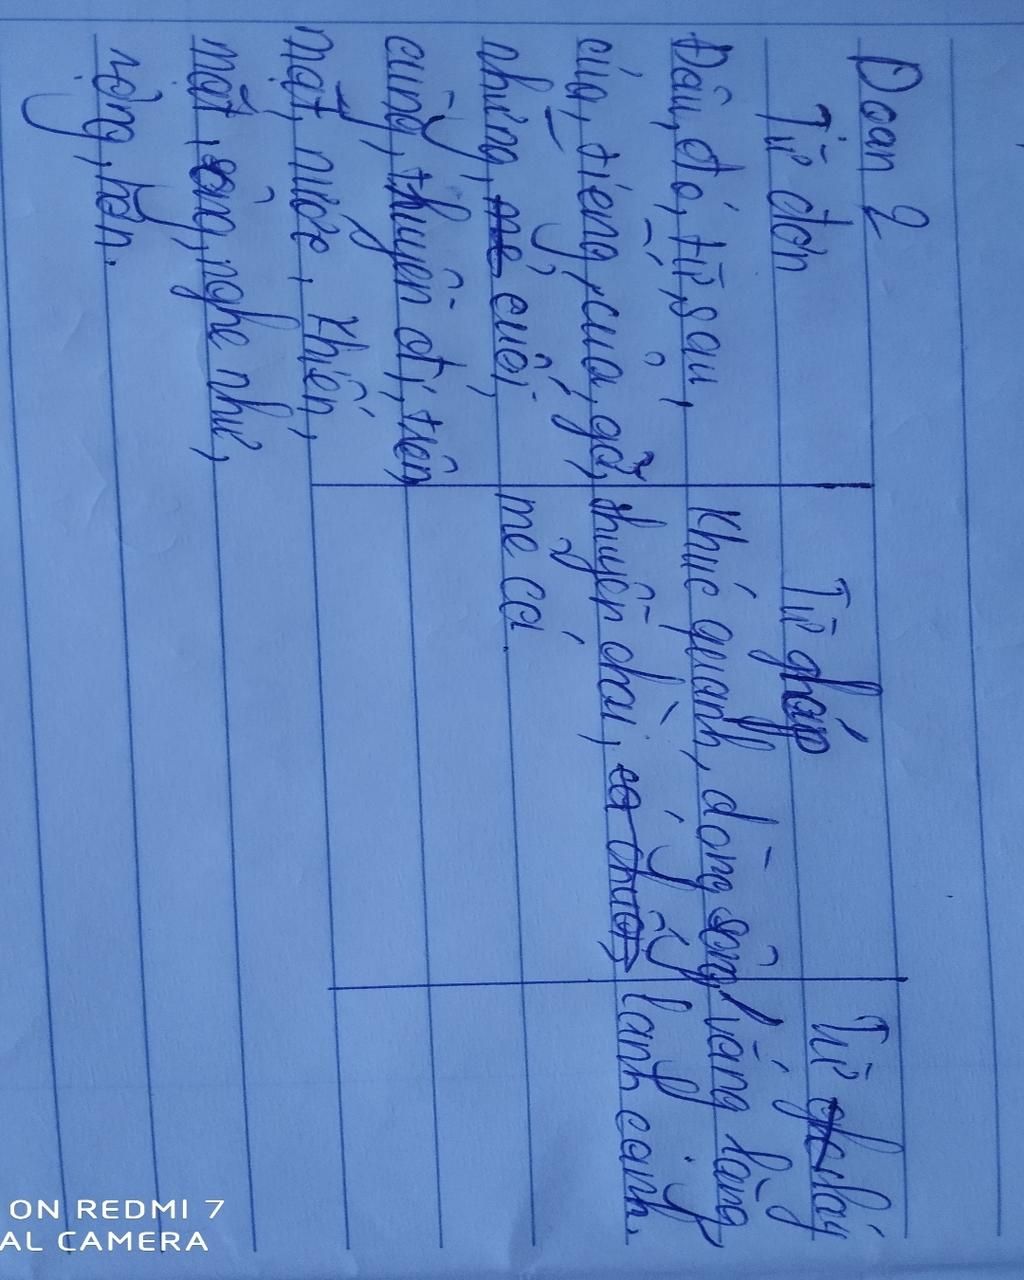 Đoạn 2
Từ đơn
Từ ghép
Từ láy
Đâu, đó, từ, sau,
Khúc quanh, dòng sông
vắng lặng,
của, tiếng, của, gõ,
thuyền chài,
lanh canh.
những, cuối,
mẻ cá.
cùng, thuyền đi, trên
mặt, nước, khiến,
mặt, sông, nghe như,
rộng, hơn.
ON REDMI 7
AL CAMERA